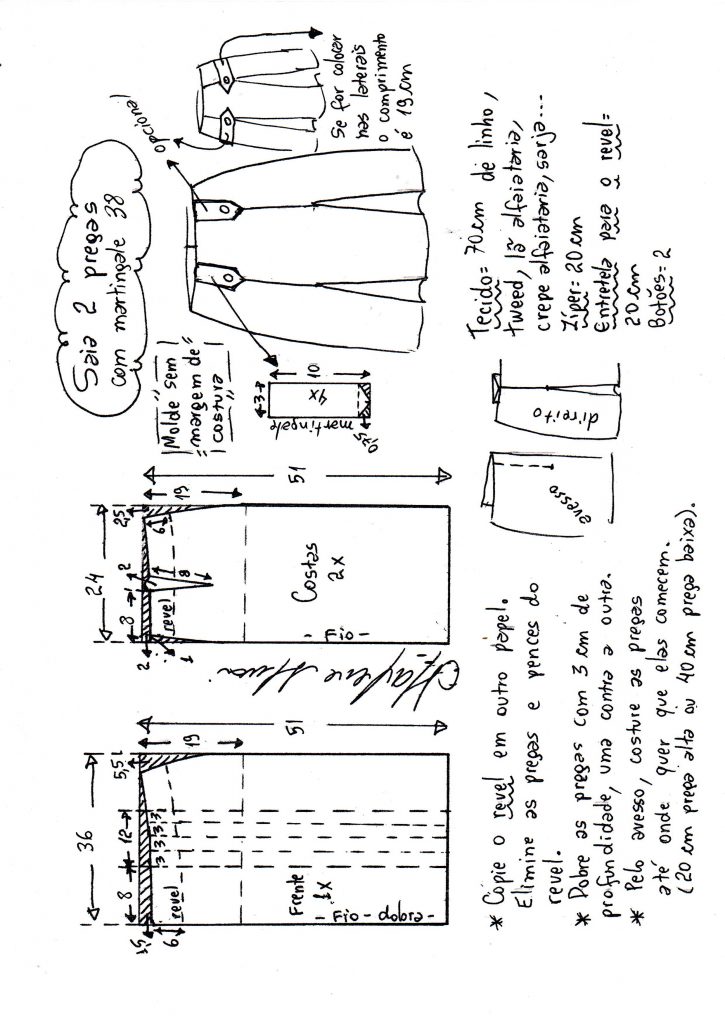 Saia 2 pregas
com martingale 38
opcional
Se for colocar
nas laterais
o comprimento
é 19 cm
"Molde sem
margem de
costura"
3
10
4x
martingale
0,75
36
8
12
5,5
19
51
3
3
3
3
1,5
6
revel
Frente
1x
- Fio - dobra -
24
8
2
2,5
19
51
2
1
1
1
8
6
revel
Costas
2x
- Fio -
Marlene Mukai
avesso
direito
Tecido= 70 cm de linho,
tweed, lã alfaiataria,
crepe alfaiataria, sarja...
Zíper= 20 cm
Entretela para o revel=
20 cm
Botões= 2
* Copie o revel em outro papel.
Elimine as pregas e pences do
revel.
* Dobre as pregas com 3 cm de
profundidade, uma contra a outra.
* Pelo avesso, costure as pregas
até onde quer que elas comecem.
(20 cm prega alta ou 40 cm prega baixa).